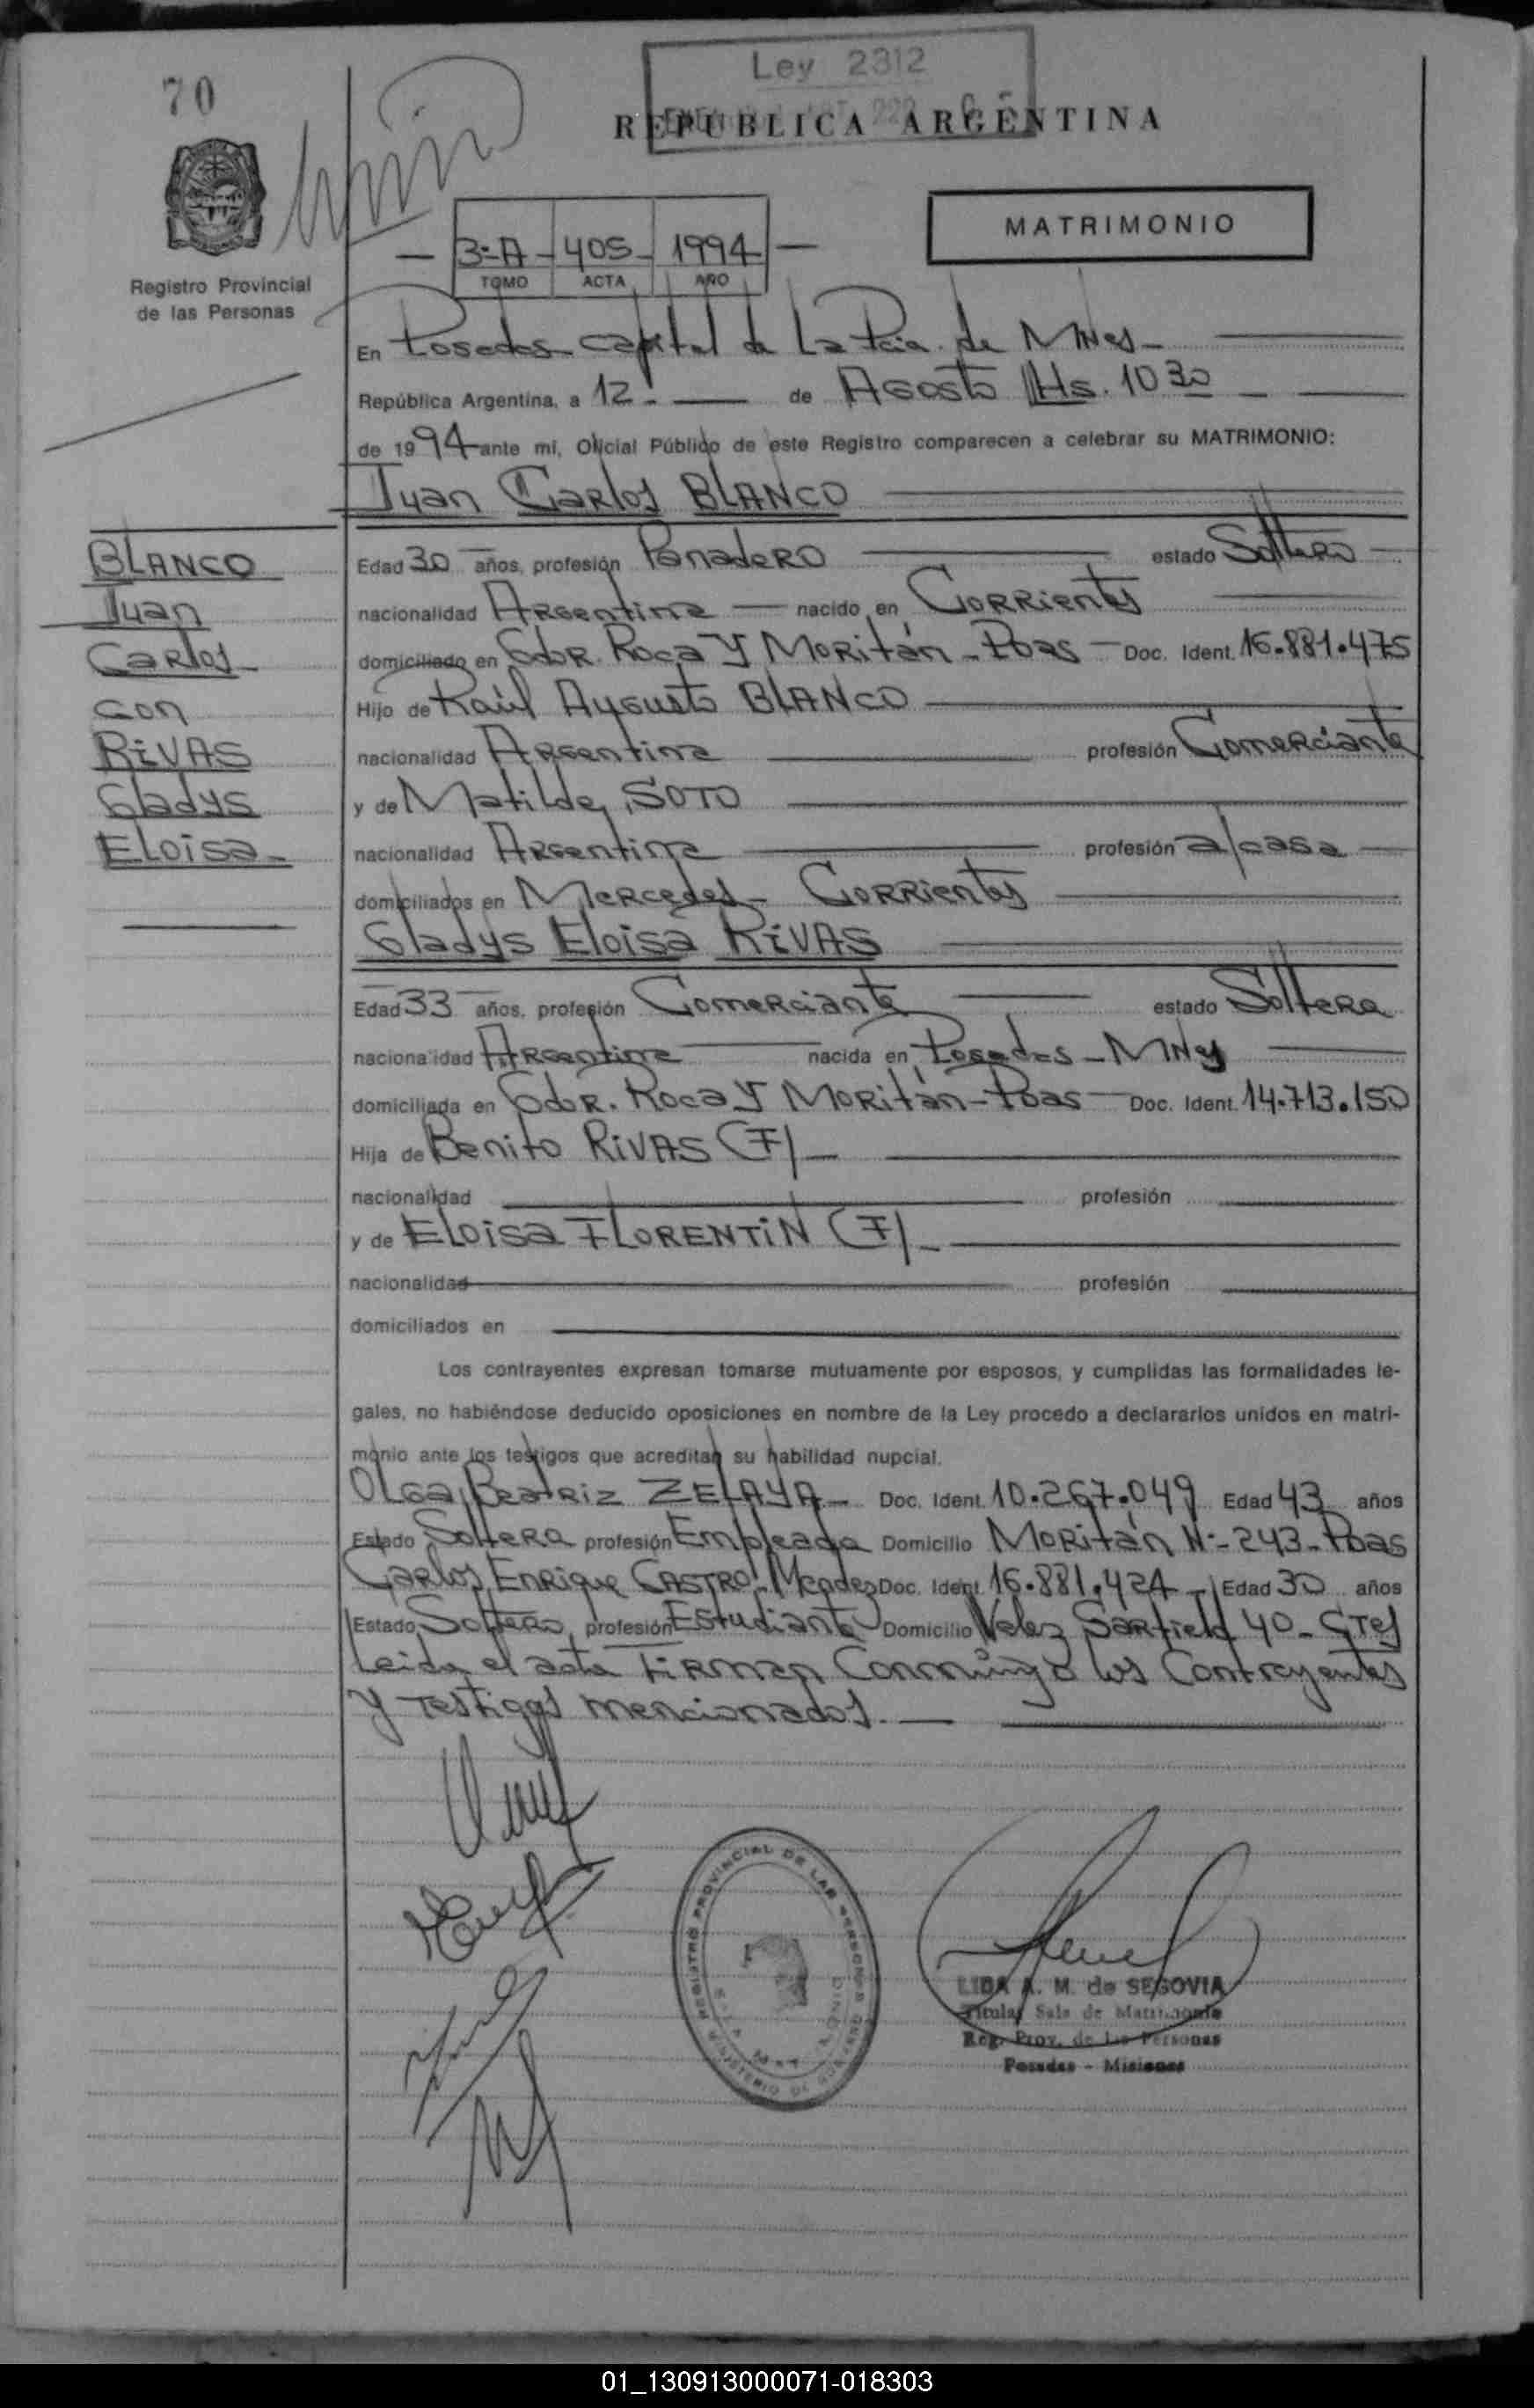 70
Ley 2312
REPUBLICA ARGENTINA
MATRIMONIO
3-A - 405 - 1994
TOMO ACTA AÑO
Registro Provincial
de las Personas
En Posadas capital de La Pcia. de MNes
República Argentina, a 12 de Agosto Hs. 10 30
de 1994 ante mí, Oficial Público de este Registro comparecen a celebrar su MATRIMONIO:
Juan Carlos BLANCO
BLANCO
Juan
Carlos
con
RIVAS
Gladys
Eloisa
Edad 30 años, profesión Panadero estado Soltero
nacionalidad Argentina nacido en Corrientes
domiciliado en Gdor. Roca y Moritán - Pdas Doc. Ident. 16.881.475
Hijo de Raúl Augusto BLANCO
nacionalidad Argentina profesión Comerciante
y de Matilde SOTO
nacionalidad Argentina profesión a/casa
domiciliados en Mercedes - Corrientes
Gladys Eloisa RIVAS
Edad 33 años, profesión Comerciante estado Soltera
nacionalidad Argentina nacida en Posadas - MNes
domiciliada en Gdor. Roca y Moritán - Pdas Doc. Ident. 14.713.150
Hija de Benito RIVAS (F)
nacionalidad profesión
y de Eloisa FLORENTIN (F)
nacionalidad profesión
domiciliados en
Los contrayentes expresan tomarse mutuamente por esposos, y cumplidas las formalidades le-
gales, no habiéndose deducido oposiciones en nombre de la Ley procedo a declararlos unidos en matri-
monio ante los testigos que acreditan su habilidad nupcial.
Olga Beatriz ZELAYA - Doc. Ident. 10.267.049 Edad 43 años
Estado Soltera profesión Empleada Domicilio Moritán Nº 243 - Pdas
Carlos Enrique CASTRO Mendez Doc. Ident. 16.881.424 - Edad 30 años
Estado Soltero profesión Estudiante Domicilio Velez Sarfield 40 - Ctes
Leida el acta Firman Conmigo los Contrayentes
y Testigos mencionados.
REGISTRO PROVINCIAL DE LAS PERSONAS
MINISTERIO DE GOBIERNO
LIDA A. M. de SEGOVIA
Titular Sala de Matrimonio
Reg. Prov. de las Personas
Posadas - Misiones
01_130913000071-018303